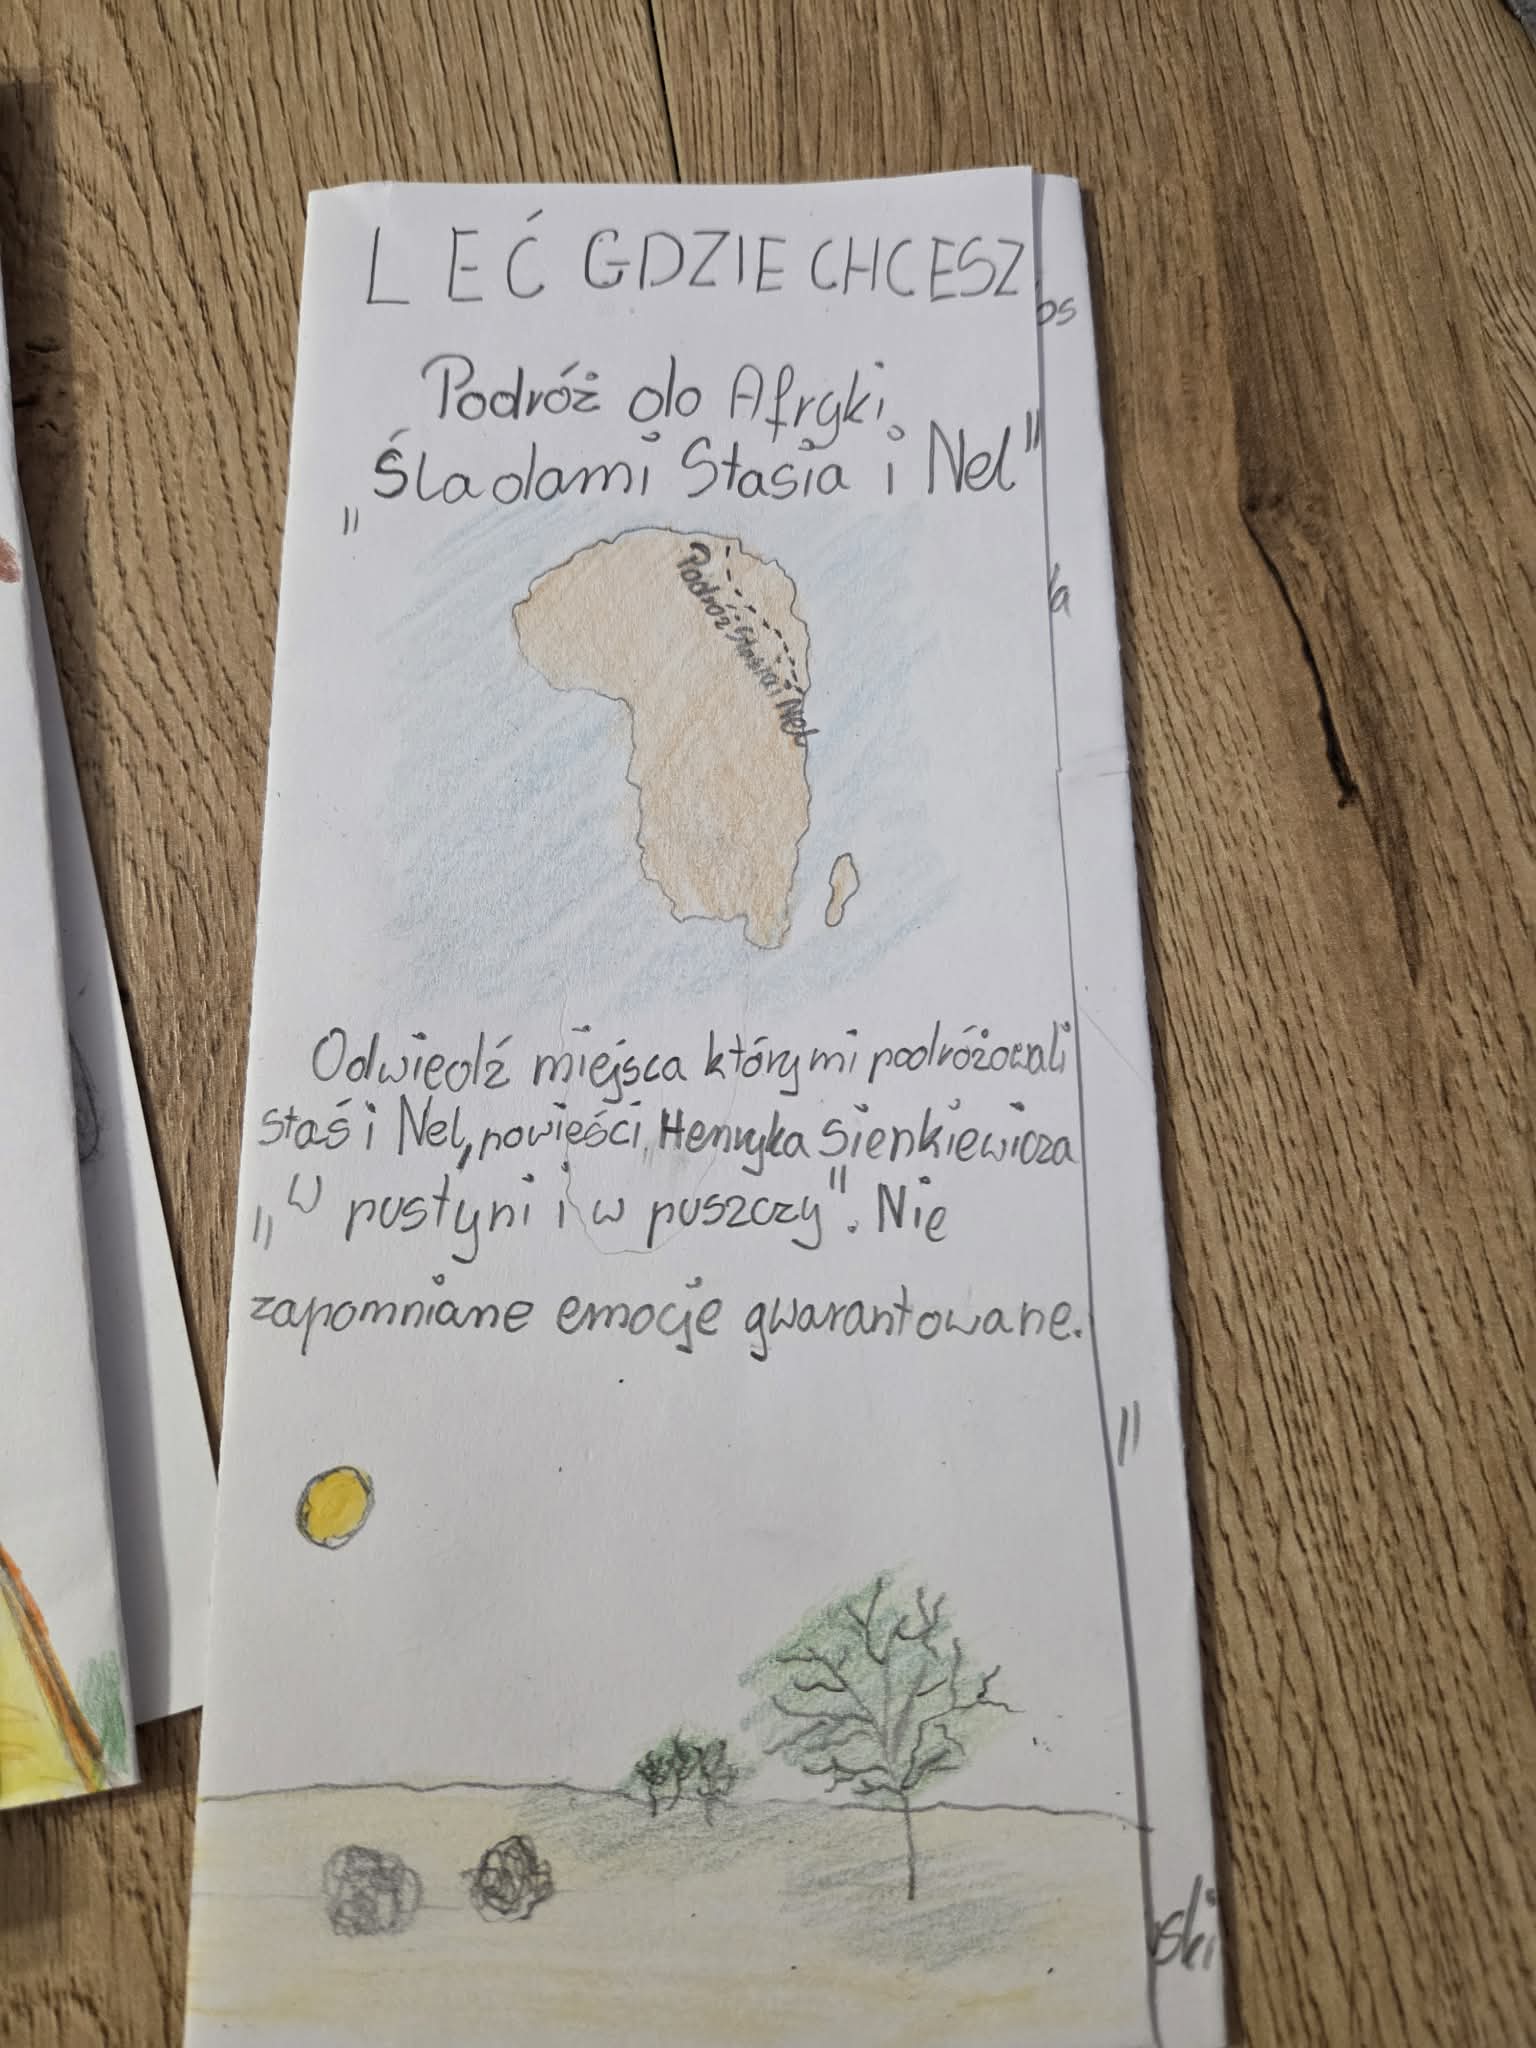 LEĆ GDZIE CHCESZ
os
Podróż do Afryki
„Śladami Stasia i Nel"
Podróż Stasia i Nel
Odwiedź miejsca którymi podróżowali
Staś i Nel, powieści Henryka Sienkiewicza
„W pustyni i w puszczy". Nie
zapomniane emocje gwarantowane.
"
ski